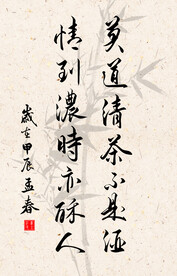 莫道清茶不是酒
情到濃時亦酥人
歲在甲辰孟春